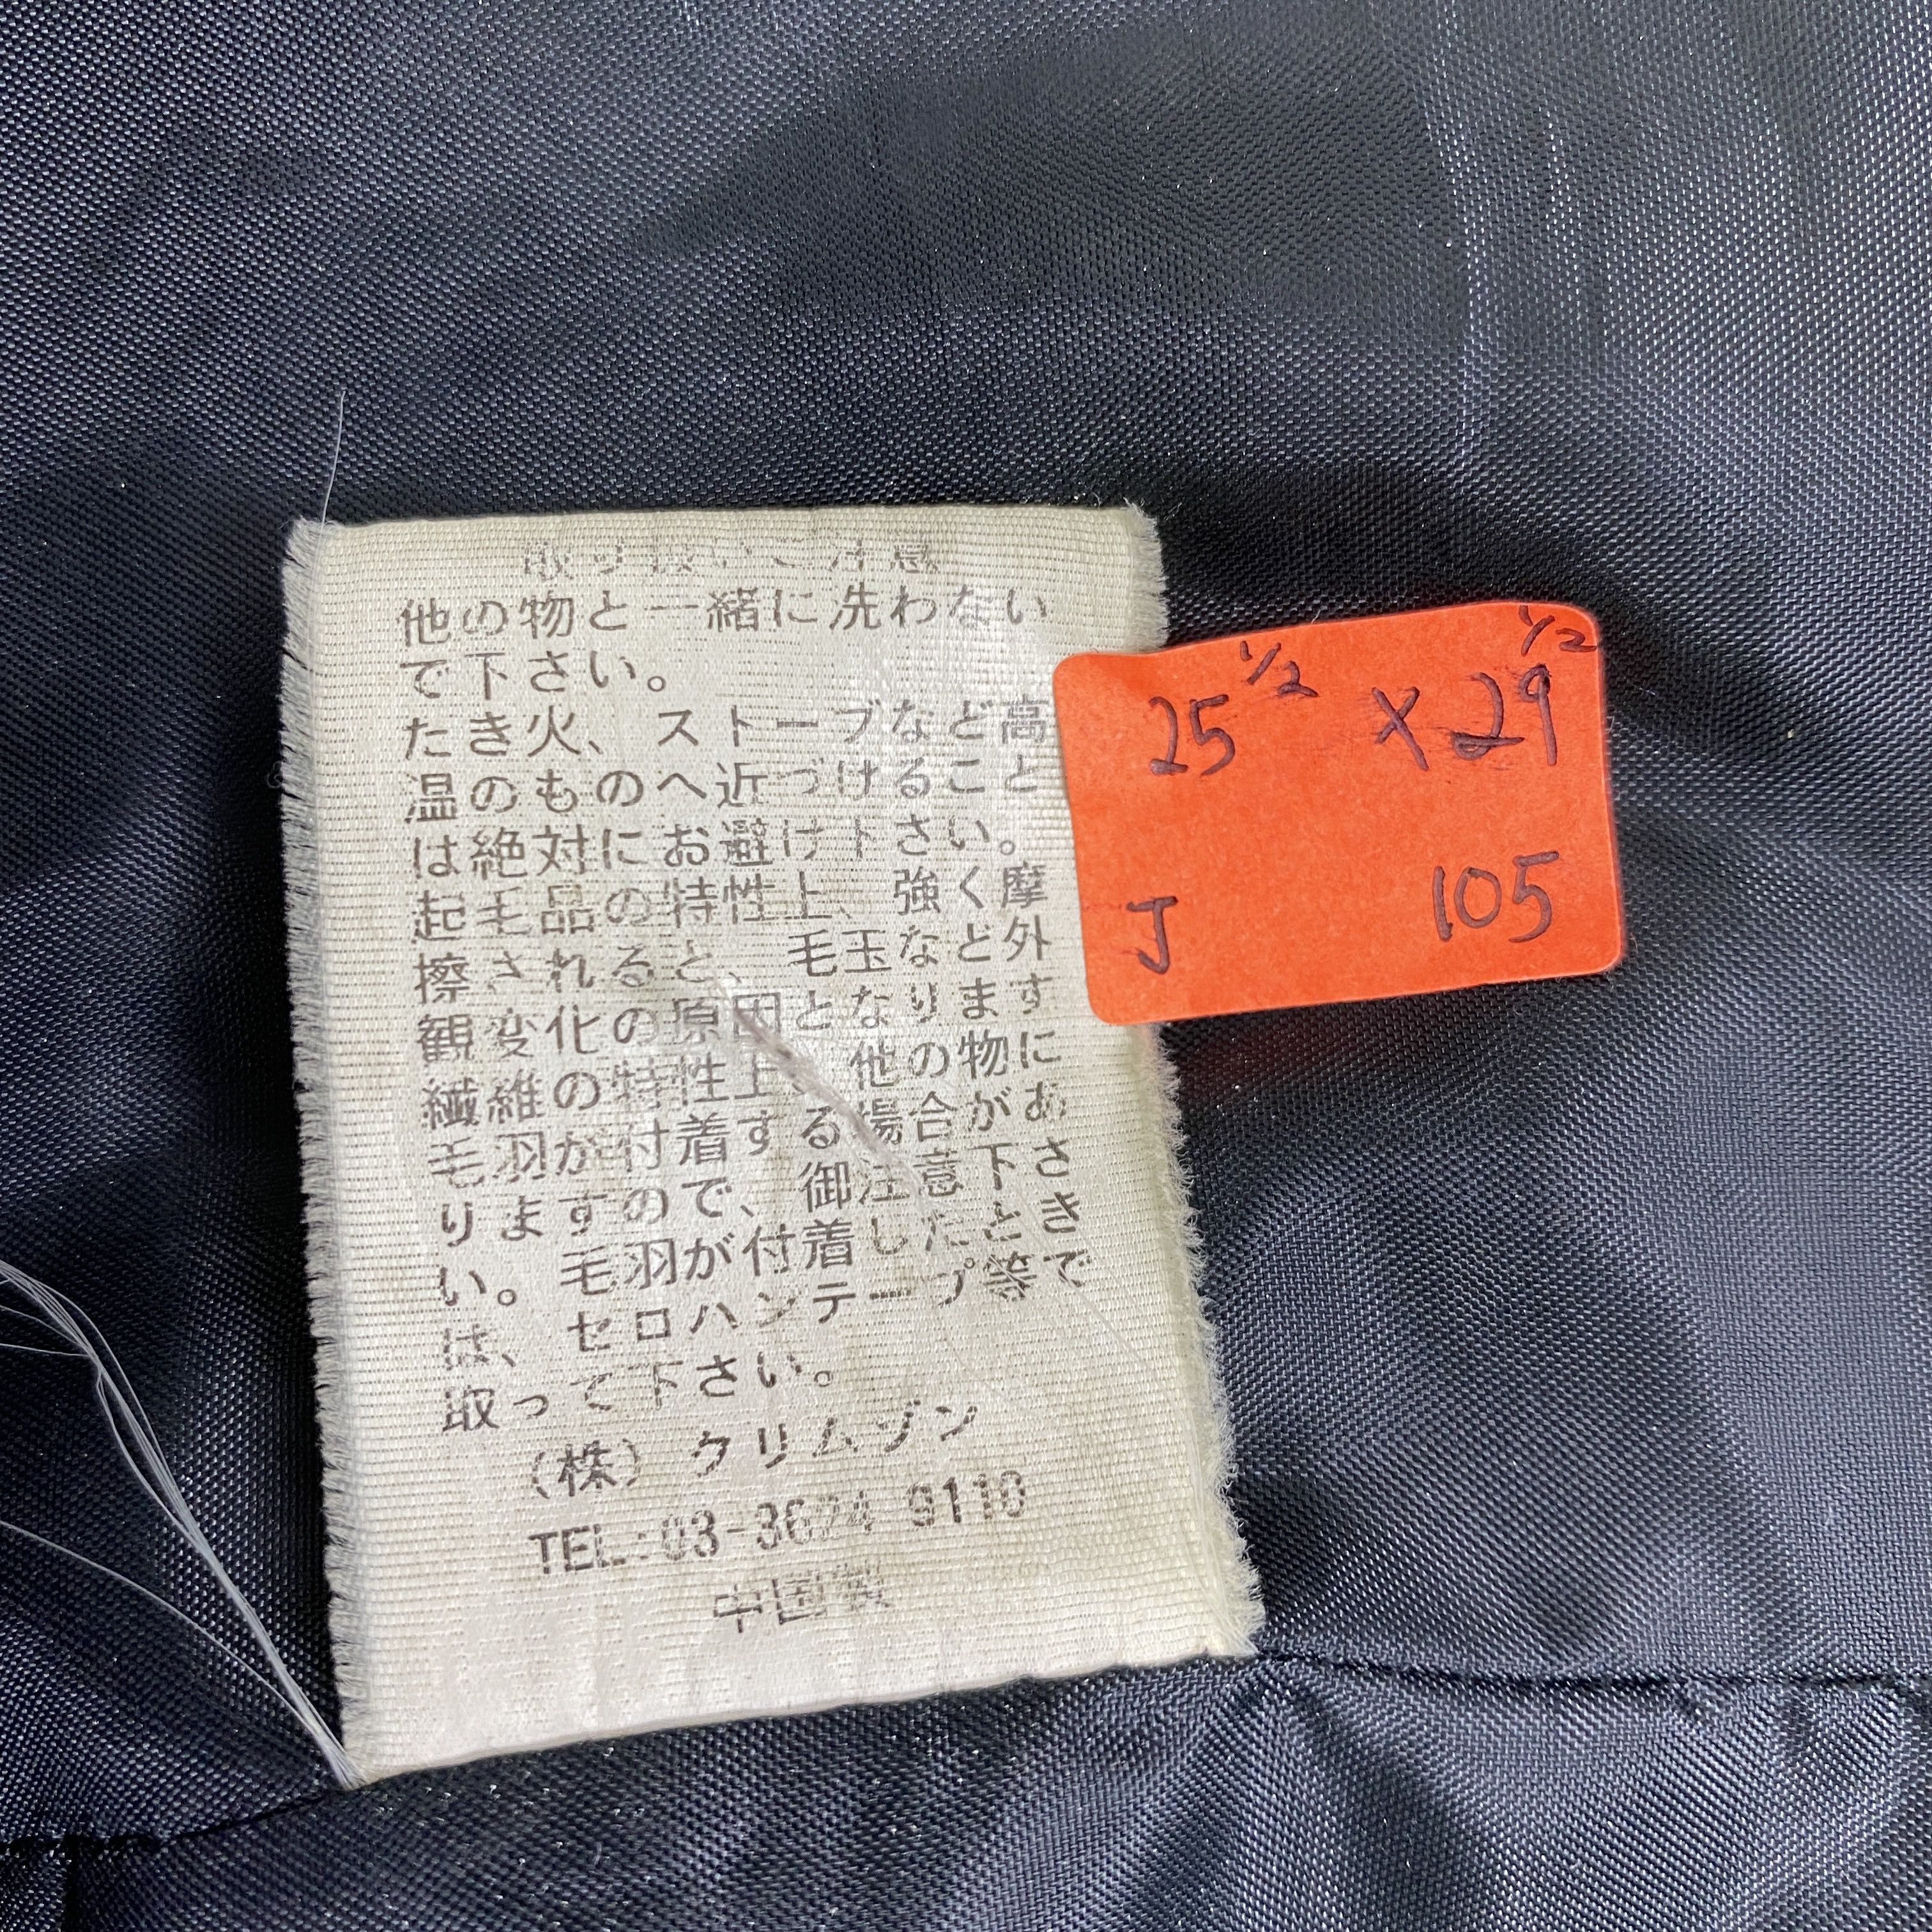 取り扱いご注意
他の物と一緒に洗わない
で下さい。
たき火、ストーブなど高
温のものへ近づけること
は絶対にお避け下さい。
起毛品の特性上、強く摩
擦されると、毛玉など外
観変化の原因となります
繊維の特性上、他の物に
毛羽が付着する場合があ
りますので、御注意下さ
い。毛羽が付着したとき
は、セロハンテープ等で
取って下さい。
(株)クリムゾン
TEL:03-3624-9110
中国製
25 1/2 x 29 1/2
J 105